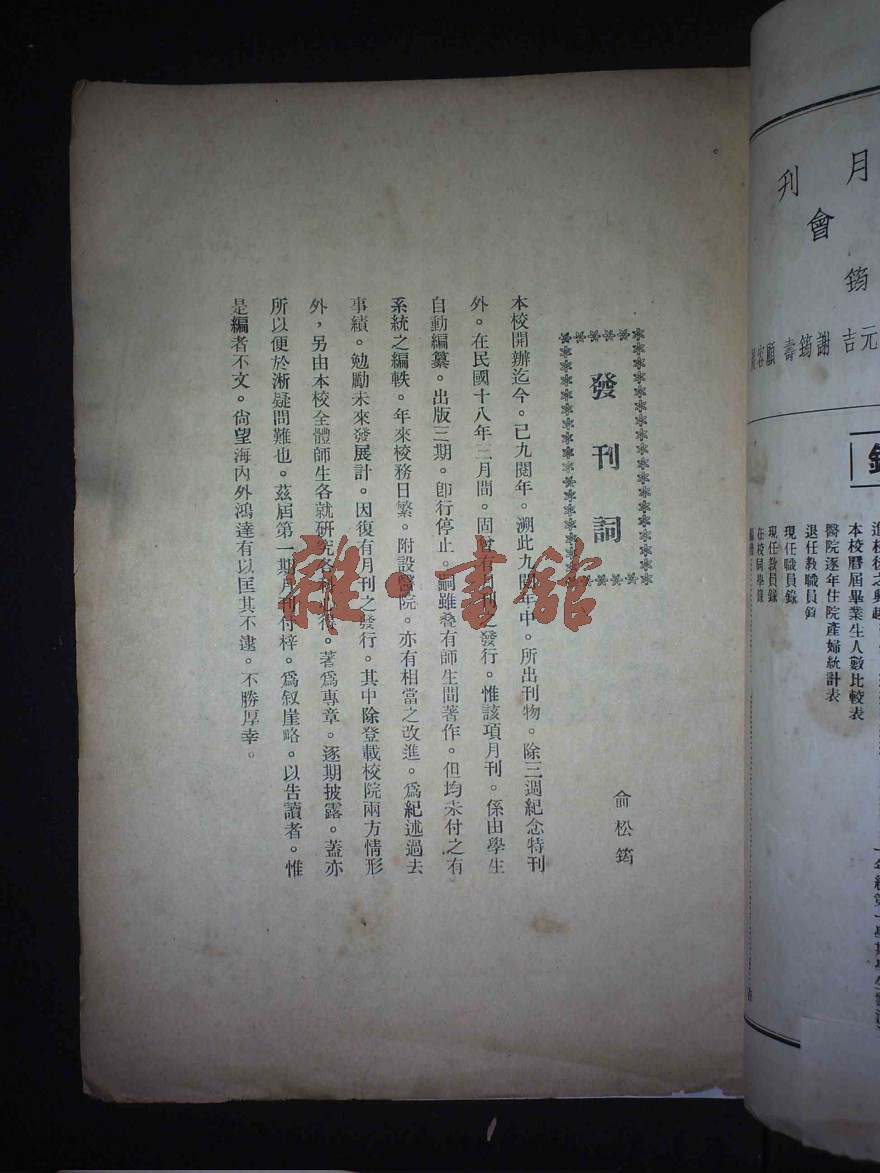 發刊詞
俞松筠
本校開辦迄今。已九閱年。溯此九閱年中。所出刊物。除三週紀念特刊
外。在民國十八年三月間。固曾有月刊之發行。惟該項月刊。係由學生
自動編纂。出版三期。卽行停止。嗣雖叠有師生間著作。但均未付之有
系統之編帙。年來校務日繁。附設醫院。亦有相當之改進。爲紀述過去
事績。勉勵未來發展計。因復有月刊之發行。其中除登載校院兩方情形
外，另由本校全體師生各就研究各科心得。著爲專章。逐期披露。蓋亦
所以便於淅疑問難也。茲屆第一期月刊付梓。爲叙崖略。以告讀者。惟
是編者不文。尙望海內外鴻達有以匡其不逮。不勝厚幸。
雜·書館
月
刊
會
筠
元吉 謝筠壽 顧容
本校曆屆畢業生人數比較表
醫院逐年住院產婦統計表
退任教職員錄
現任職員錄
現任教員錄
在校同學錄